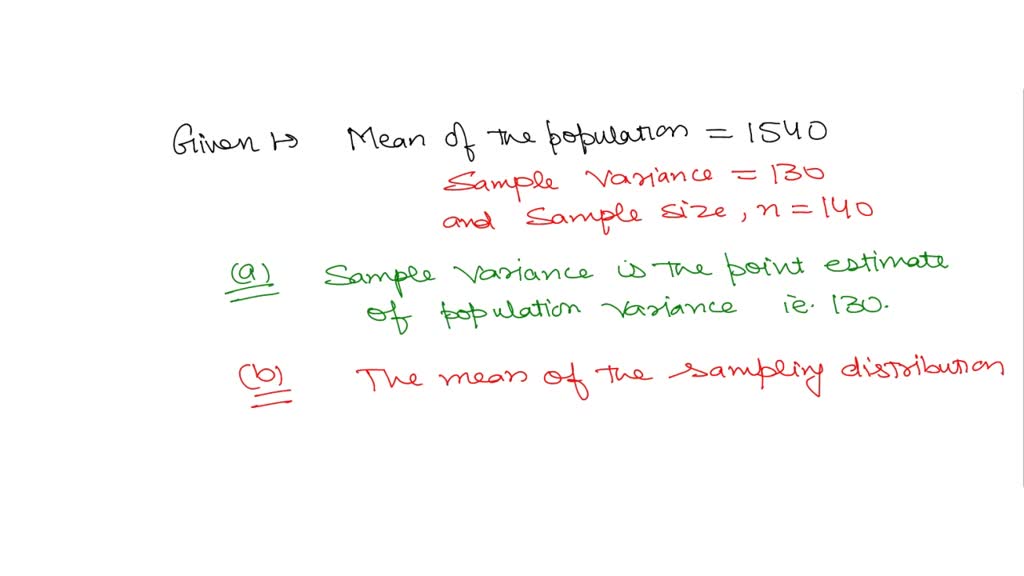 Given ↦ Mean of the population = 1540
Sample variance = 130
and Sample size, n = 140
(a) Sample variance is the point estimate
of population variance ie. 130.
(b) The mean of the sampling distribution